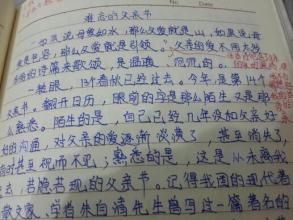 No.
Date
难忘的父亲节
如果说母爱如水,那么父爱就是山,如果说母
爱是,那么父爱就是引领。父亲的爱不用太多
的诗篇来歌颂,是温暖、的。
一转眼,13个春秋已经过去。今年,是第14个
父亲节。翻开日历,眼前的字是那么陌生又是那
么熟悉。陌生的是,自己已经几年没和父亲好
的沟通,对父亲的爱逐渐淡漠了,甚至消失了
时甚至视而不见;熟悉的是,这是从未离我
去,若隐若现的父亲节。记得我国的现代著
散文家,学者朱自清先生曾写过一篇著名的